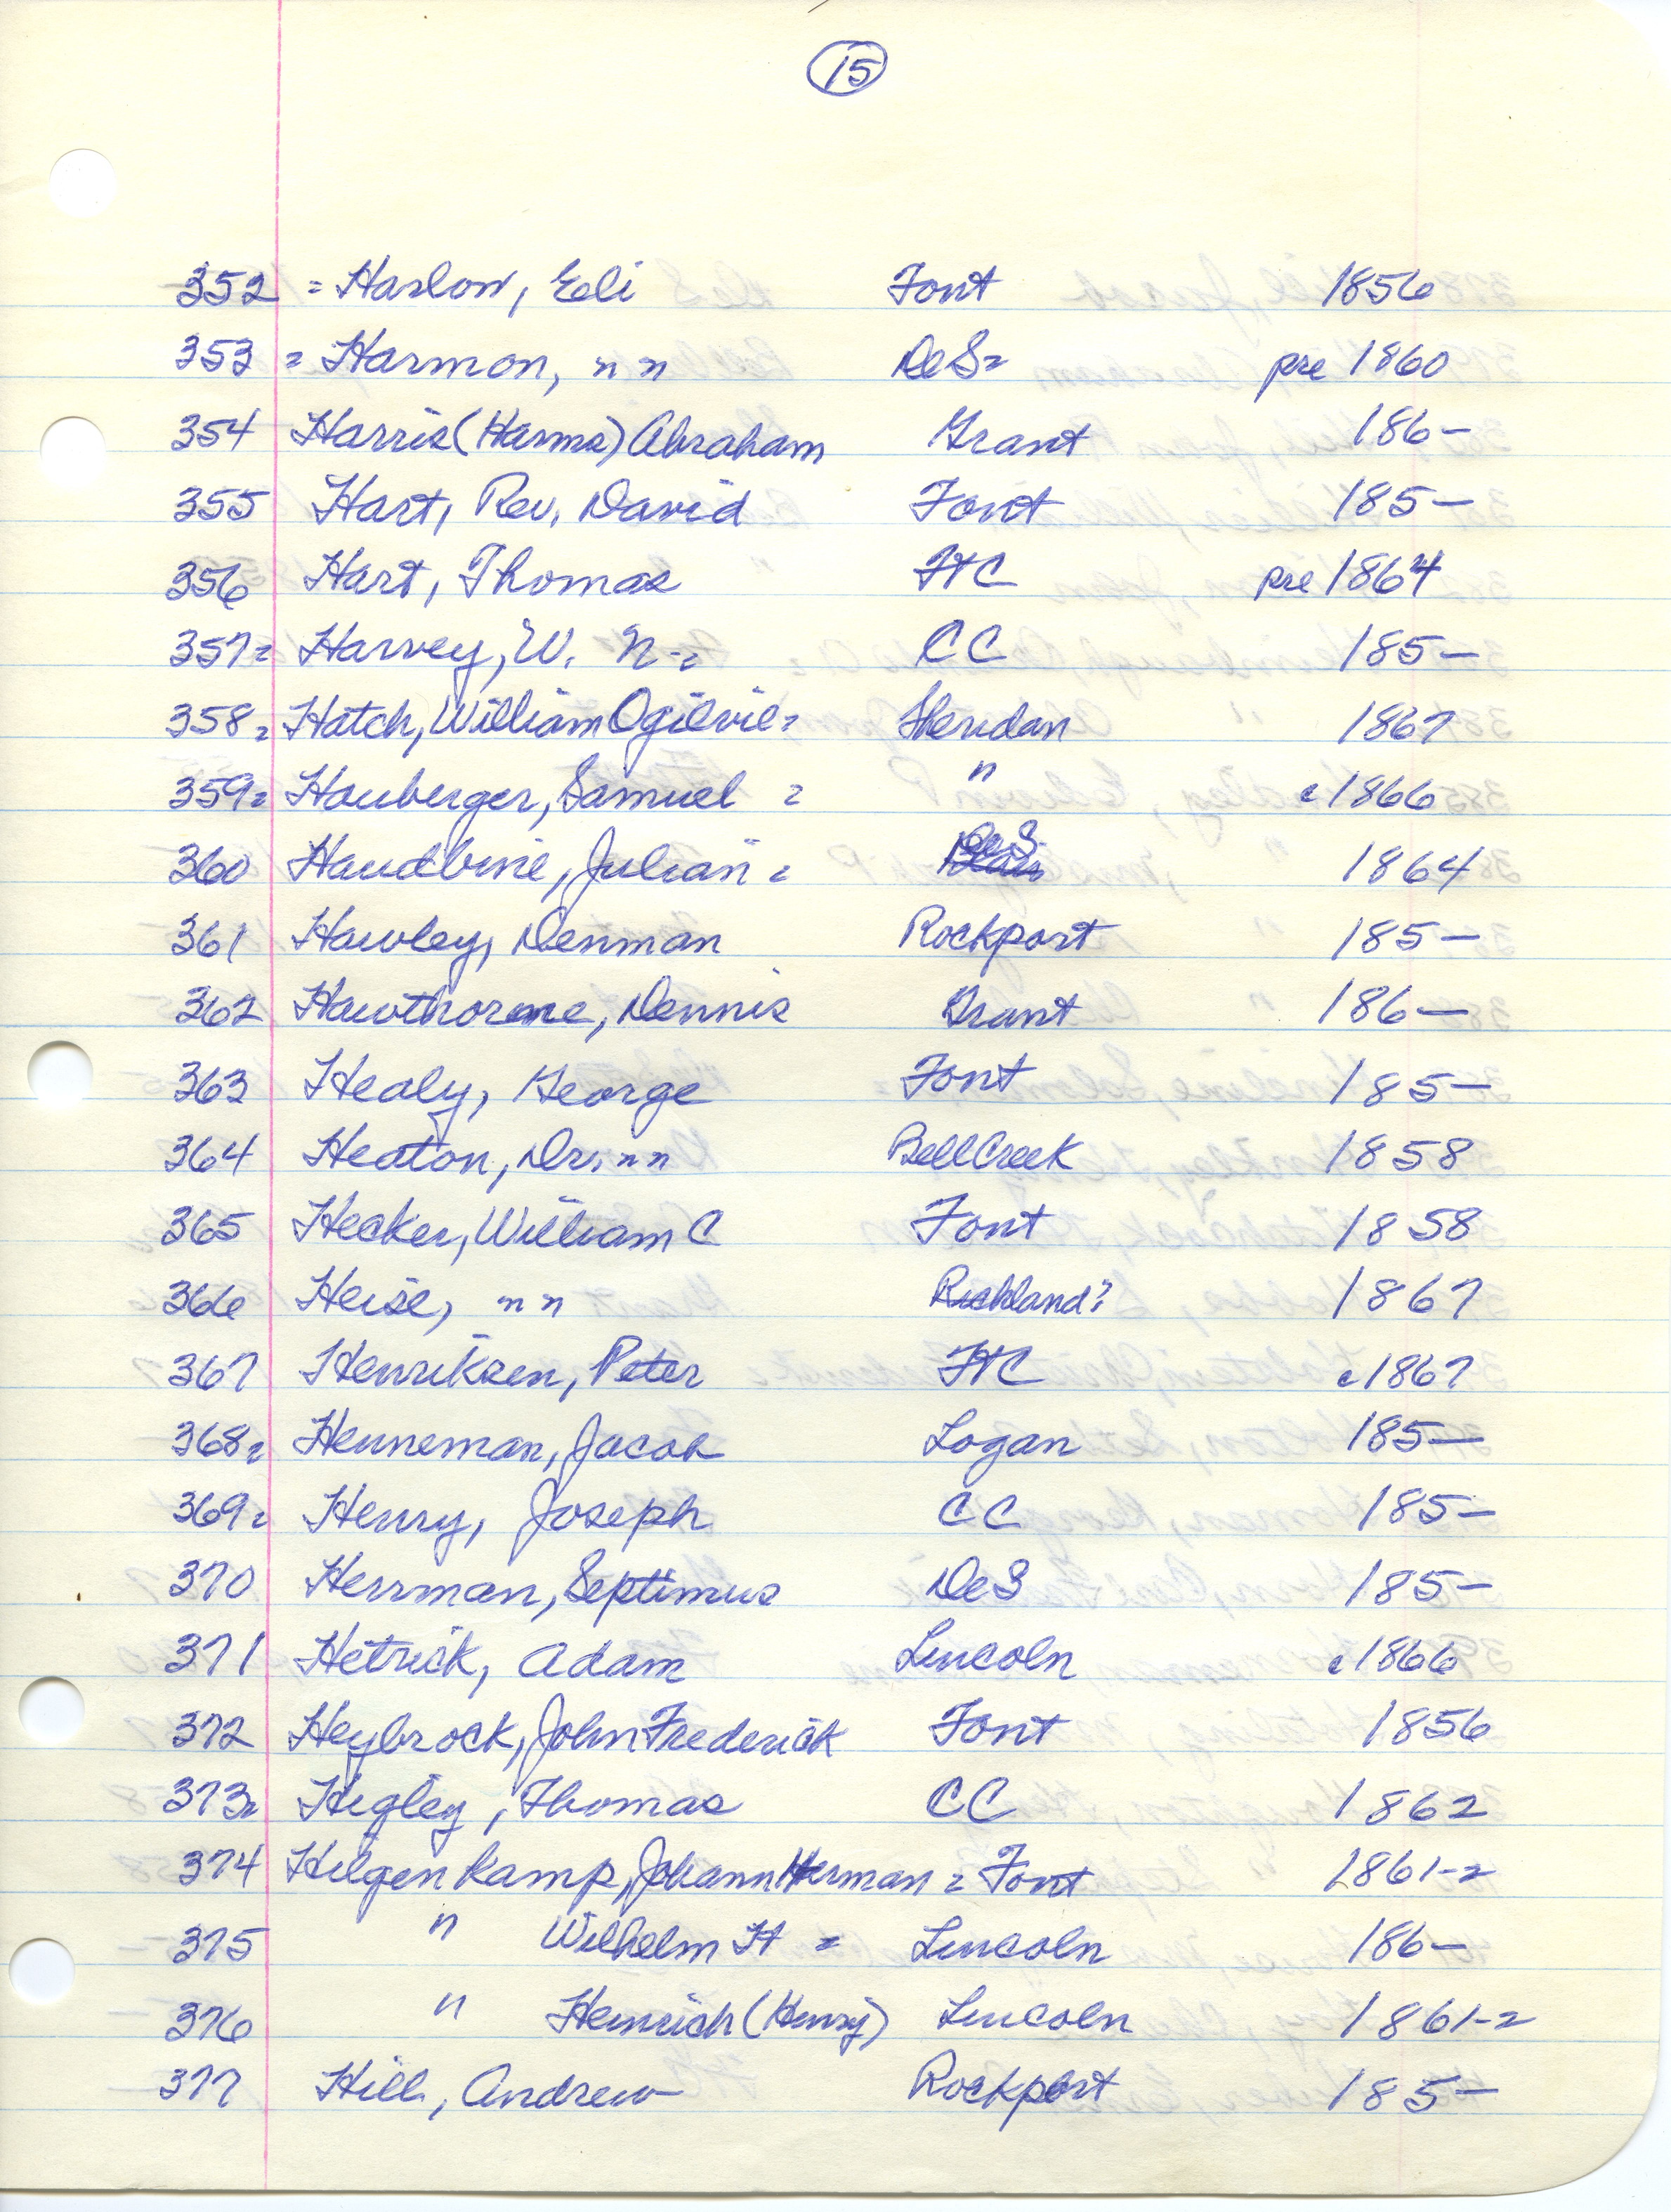 15
352 = Harlow, Eli Font 1856
353 = Harmon, nn DeS= pre 1860
354 Harris (Harms) Abraham Grant 186-
355 Hart, Rev. David Font 185-
356 Hart, Thomas FtC pre 1864
357= Harvey, W. N-= CC 185-
358= Hatch, William Ogilvie= Sheridan 1867
359= Hauberger, Samuel = " c1866
360 Haudbine, Julian = DeS 1864
361 Hawley, Denman Rockport 185-
362 Hawthorne, Dennis Grant 186-
363 Healy, George Font 185-
364 Heaton, Dr. nn Bell Creek 1858
365 Hecker, William C Font 1858
366 Heise, nn Richland? 1867
367 Henriksen, Peter FtC c1867
368= Henneman, Jacob Logan 185-
369= Henry, Joseph CC 185-
370 Herrman, Septimus DeS 185-
371 Hetrick, Adam Lincoln c1866
372 Heybrock, John Frederick Font 1856
373= Higley, Thomas CC 1862
374 Hilgenkamp, Johann Herman = Font 1861-2
375 " Wilhelm H = Lincoln 186-
376 " Heinrich (Henry) Lincoln 1861-2
377 Hill, Andrew Rockport 185-